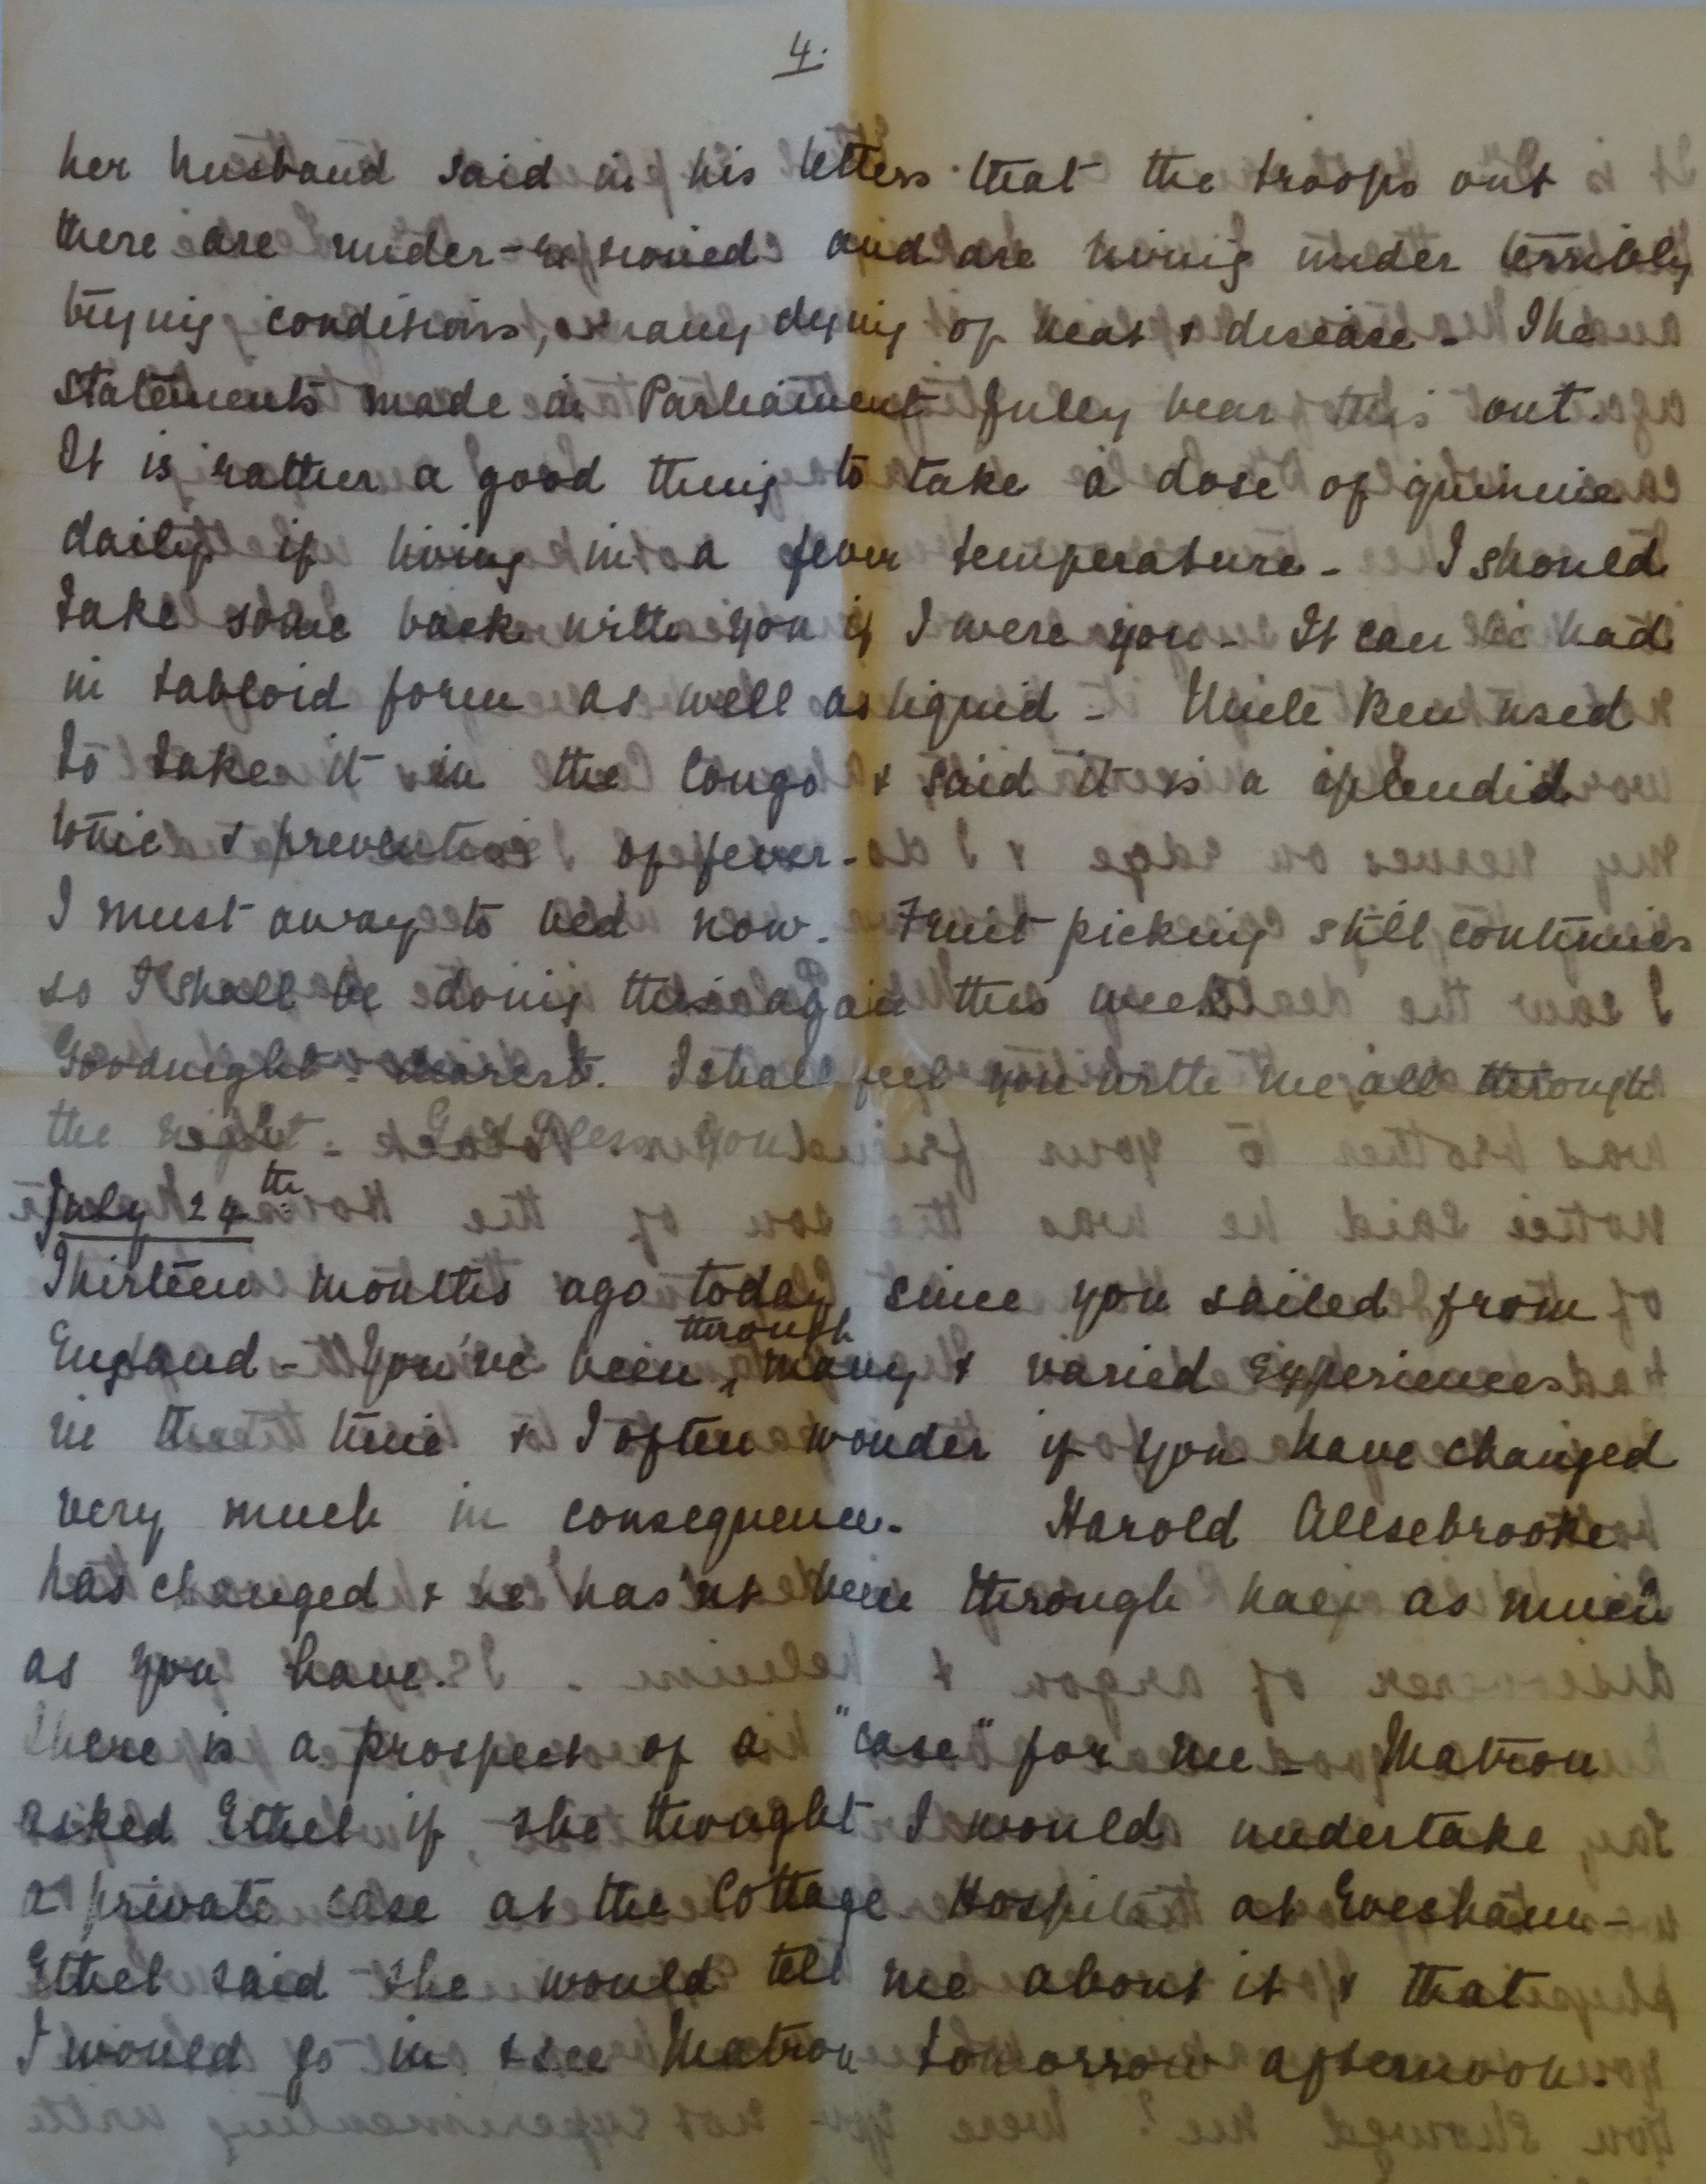 4.
her husband said in his letters that the troops out
there are under-rationed and are living under terribly
trying conditions, many dying of heat & disease - The
statements made in Parliament fully bear this out.
It is rather a good thing to take a dose of quinine
daily if living in a fever temperature - I should
take some back with you if I were you - It can be had
in tabloid form as well as liquid - Uncle Ben used
to take it in the Congo & said it is a splendid
tonic & preventive of fever -
I must away to bed now. Fruit picking still continues
so I shall be doing this again this week
Goodnight - dearest. I shall feel you with me all through
the night - God bless you
July 24th
Thirteen months ago today since you sailed from
England - You've been through many & varied experiences
in the time & I often wonder if you have changed
very much in consequence. Harold Allsebrooke
has changed & he has'nt been through half as much
as you have.
There is a prospect of a "case" for me - Matron
asked Ethel if she thought I would undertake
a private case at the Cottage Hospital at Evesham -
Ethel said she would tell me about it & that
I would go in & see Matron tomorrow afternoon.